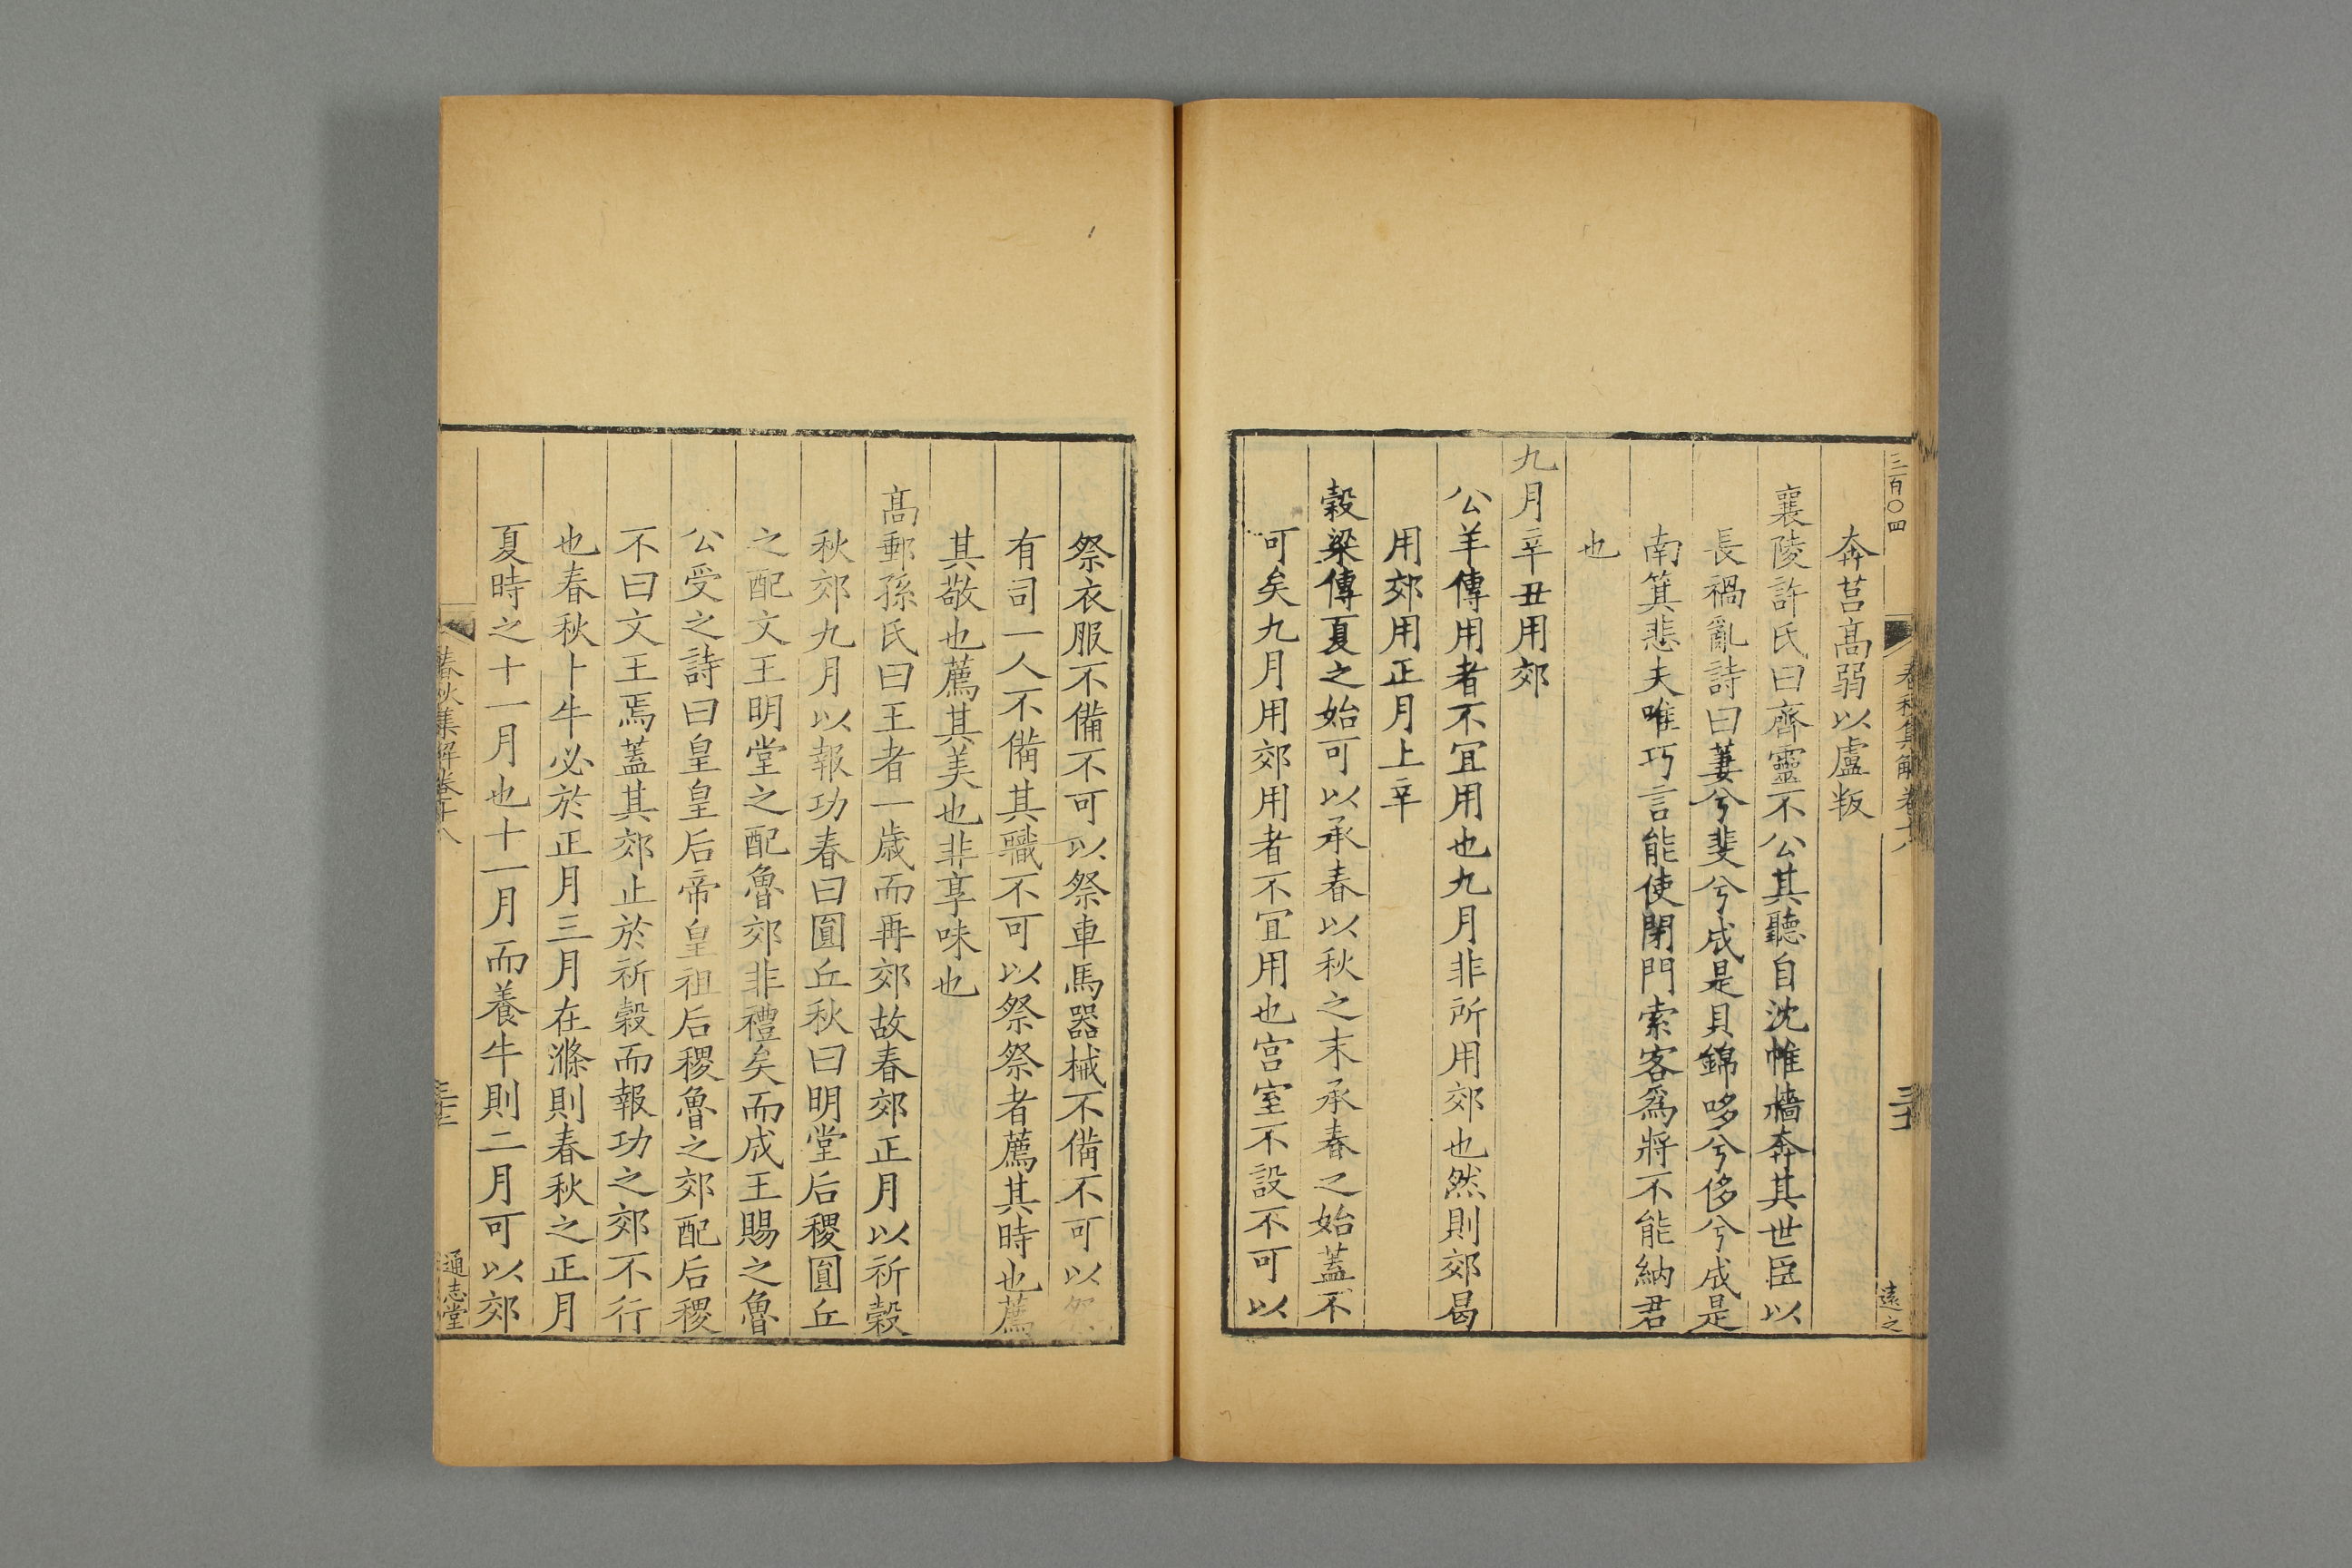 三百〇四
奔莒高弱以盧叛
襄陵許氏曰齊靈不公其聽自沈帷牆奔其世臣以
長禍亂詩曰萋兮斐兮成是貝錦哆兮侈兮成是
南箕悲夫唯巧言能使閉門索客爲將不能納君
也
九月辛丑用郊
公羊傳用者不宜用也九月非所用郊也然則郊曷
用郊用正月上辛
穀梁傳夏之始可以承春以秋之末承春之始蓋不
可矣九月用郊用者不宜用也宫室不設不可以
祭衣服不備不可以祭車馬器械不備不可以祭
有司一人不備其職不可以祭祭者薦其時也薦
其敬也薦其美也非享味也
髙郵孫氏曰王者一歳而再郊故春郊正月以祈穀
秋郊九月以報功春曰圓丘秋曰明堂后稷圓丘
之配文王明堂之配魯郊非禮矣而成王賜之魯
公受之詩曰皇皇后帝皇祖后稷魯之郊配后稷
不曰文王焉蓋其郊止於祈穀而報功之郊不行
也春秋卜牛必於正月三月在滌則春秋之正月
夏時之十一月也十一月而養牛則二月可以郊
春秋集解卷十八
通志堂